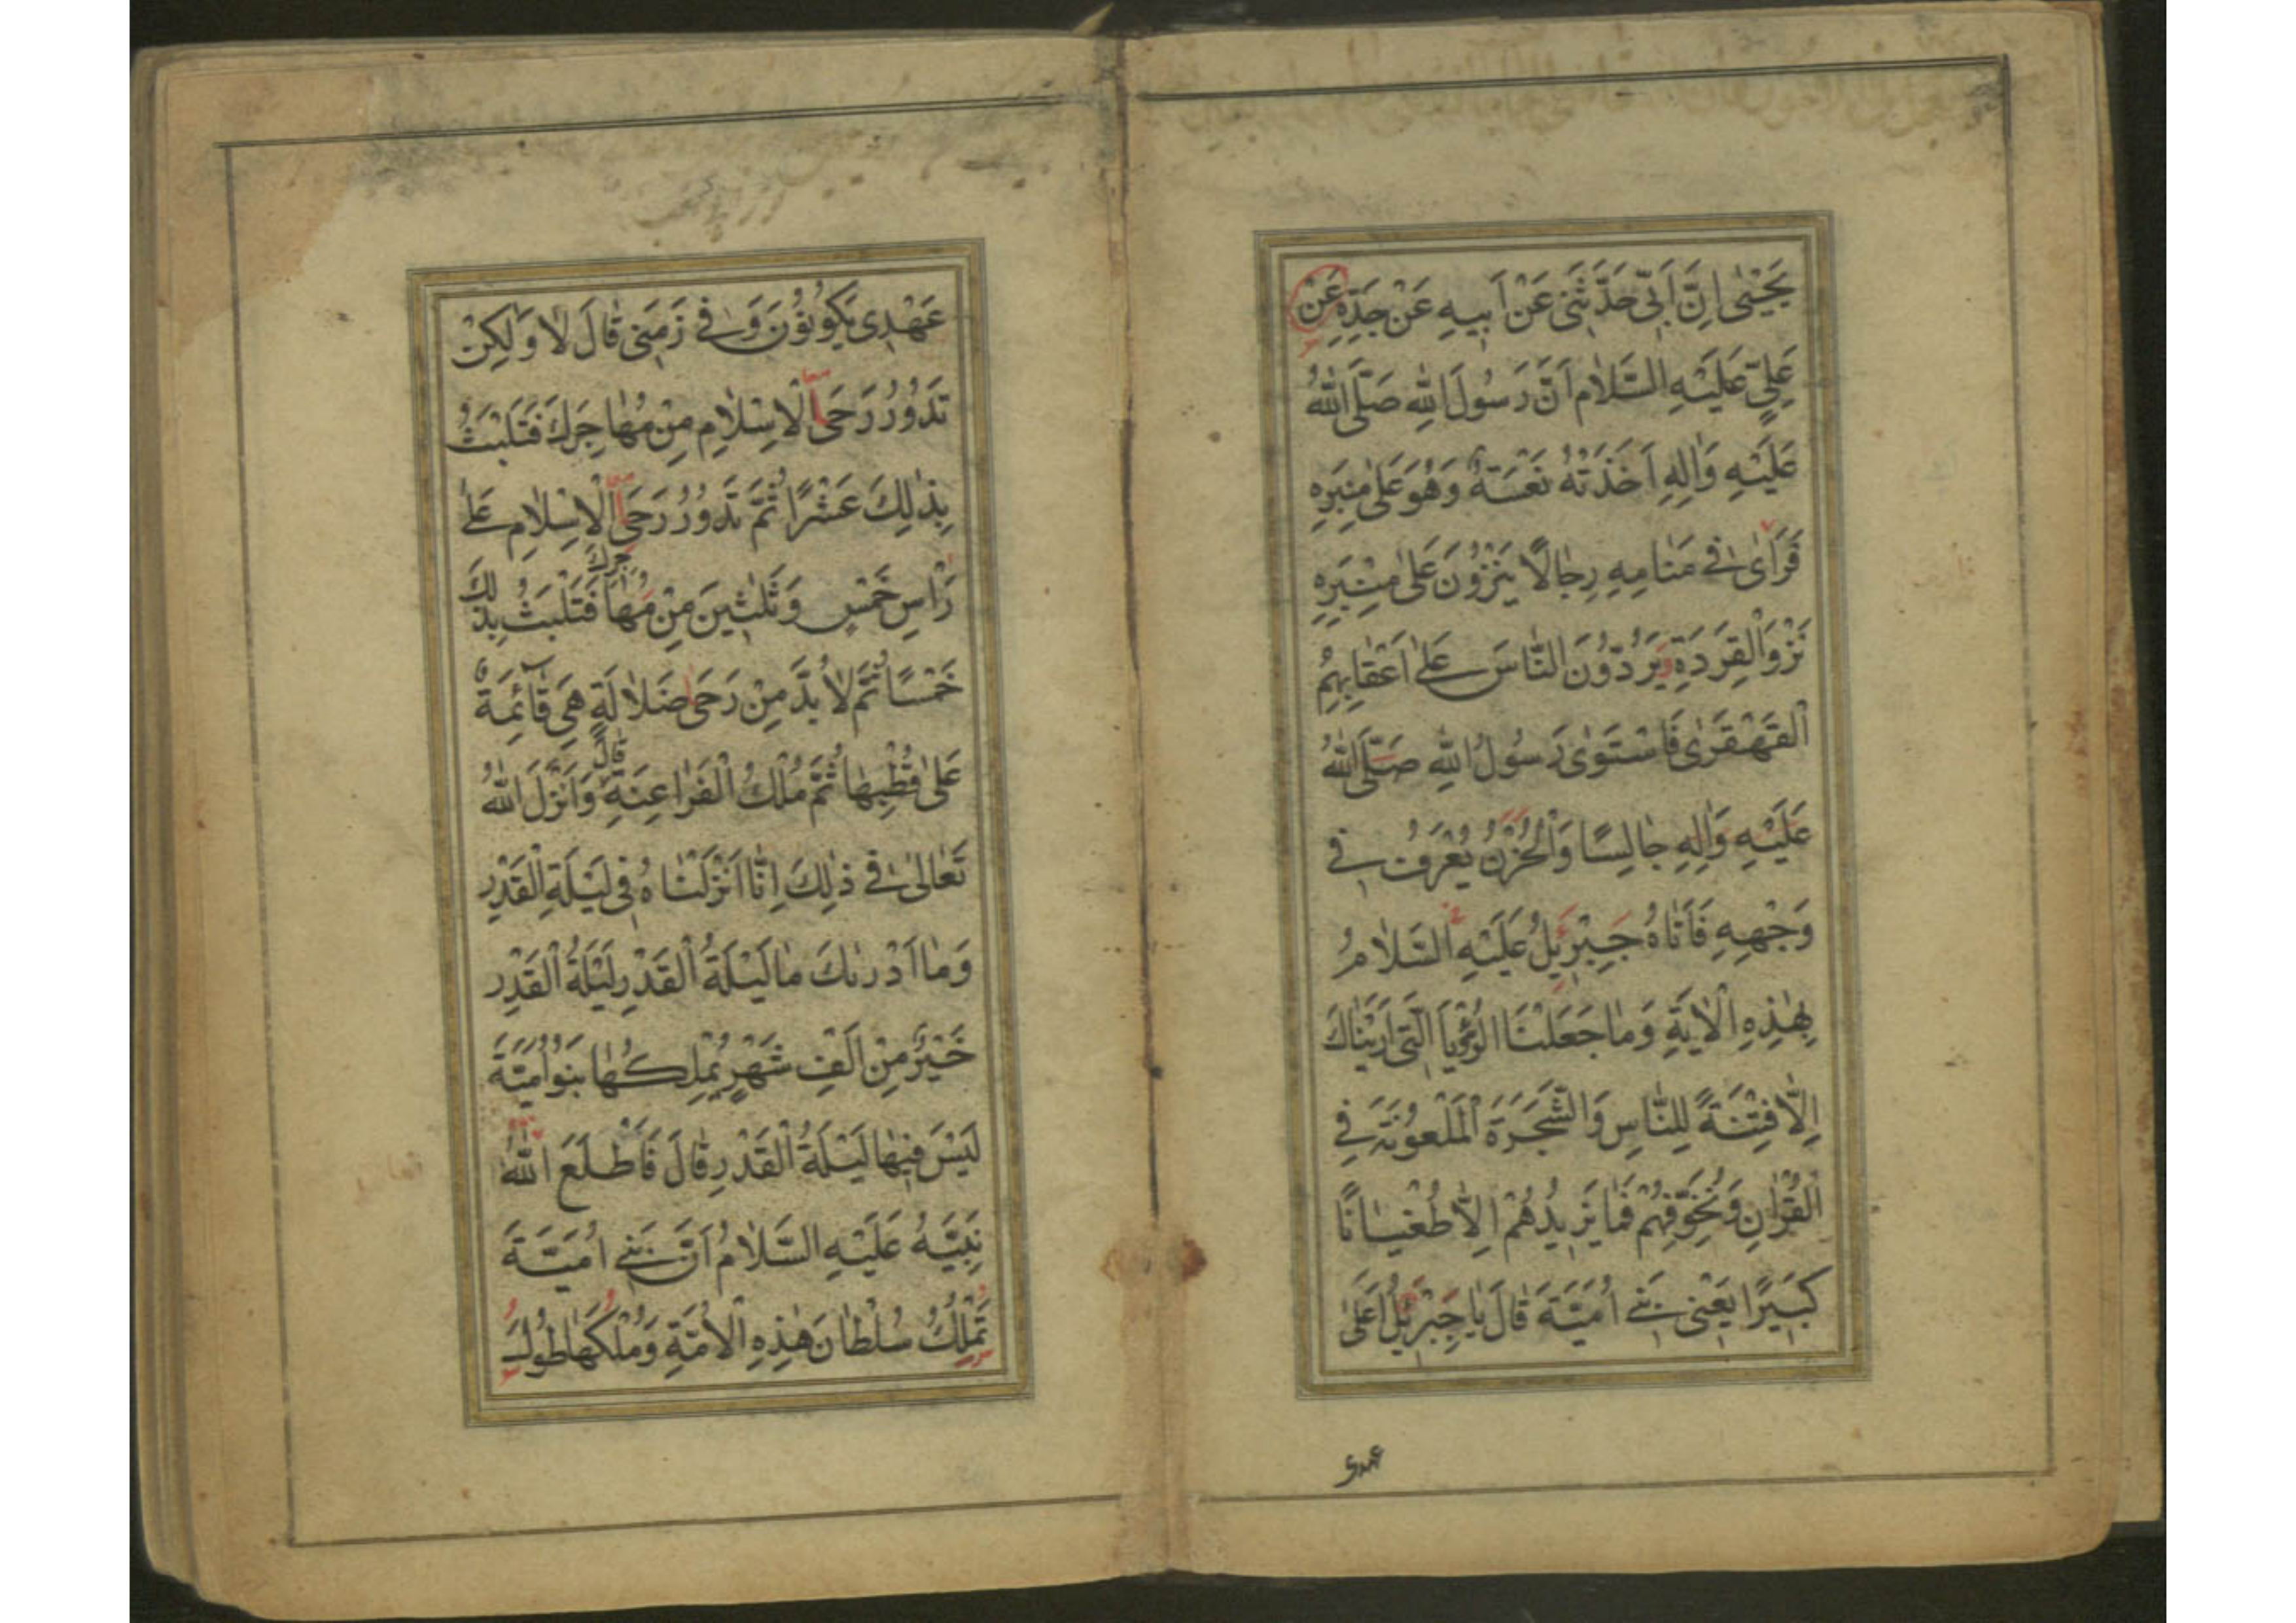 يَحْيٰى اِنَّ اَبى حَدَّثَنى عَنْ اَبيهِ عَنْ جَدِّهِ عَنْ
عَلِيٍّ عَلَيْهِ السَّلامُ اَنَّ رَسُولَ اللهِ صَلَّى اللهُ
عَلَيْهِ وَاٰلِهِ اَخَذَتْهُ نَعْسَةٌ وَهُوَ عَلى مِنْبَرِهِ
فَرَاٰى فى مَنامِهِ رِجالاً يَنْزُونَ عَلى مِنْبَرِهِ
نَزْوَ الْقِرَدَةِ يَرُدُّونَ النّاسَ عَلى اَعْقابِهِمُ
الْقَهْقَرٰى فَاسْتَوٰى رَسُولُ اللهِ صَلَّى اللهُ
عَلَيْهِ وَاٰلِهِ جالِسًا وَالْحُزْنُ يُعْرَفُ فى
وَجْهِهِ فَاَتاهُ جِبْرِئيلُ عَلَيْهِ السَّلامُ
بِهٰذِهِ الْاٰيَةِ وَما جَعَلْنَا الرُّؤْيَا الَّتى اَرَيْناكَ
اِلّا فِتْنَةً لِلنّاسِ وَالشَّجَرَةَ الْمَلْعُونَةَ فِى
الْقُرْاٰنِ وَنُخَوِّفُهُمْ فَما يَزيدُهُمْ اِلّا طُغْيانًا
كَبيرًا يَعْنى بَنى اُمَيَّةَ قالَ يا جِبْرِئيلُ اَعَلى
عهدى
عَهْدى يَكُونُونَ وَفى زَمَنى قالَ لا وَلٰكِنْ
تَدُورُ رَحَى الْاِسْلامِ مِنْ مُهاجَرِكَ فَتَلْبَثُ
بِذٰلِكَ عَشْرًا ثُمَّ تَدُورُ رَحَى الْاِسْلامِ عَلى
رَاْسِ خَمْسٍ وَثَلٰثينَ مِنْ مُهاجَرِكَ فَتَلْبَثُ بِذٰلِكَ
خَمْسًا ثُمَّ لا بُدَّ مِنْ رَحى ضَلالَةٍ هِىَ قآئِمَةٌ
عَلى قُطْبِها ثُمَّ مُلْكُ الْفَراعِنَةِ قالَ وَاَنْزَلَ اللهُ
تَعالى فى ذٰلِكَ اِنّا اَنْزَلْناهُ فى لَيْلَةِ الْقَدْرِ
وَما اَدْرٰىكَ ما لَيْلَةُ الْقَدْرِ لَيْلَةُ الْقَدْرِ
خَيْرٌ مِنْ اَلْفِ شَهْرٍ يَمْلِكُها بَنُو اُمَيَّةَ
لَيْسَ فيها لَيْلَةُ الْقَدْرِ قالَ فَاَطْلَعَ اللهُ
نَبِيَّهُ عَلَيْهِ السَّلامُ اَنَّ بَنى اُمَيَّةَ
تَمْلِكُ سُلْطانَ هٰذِهِ الْاُمَّةِ وَمُلْكَها طُولَ